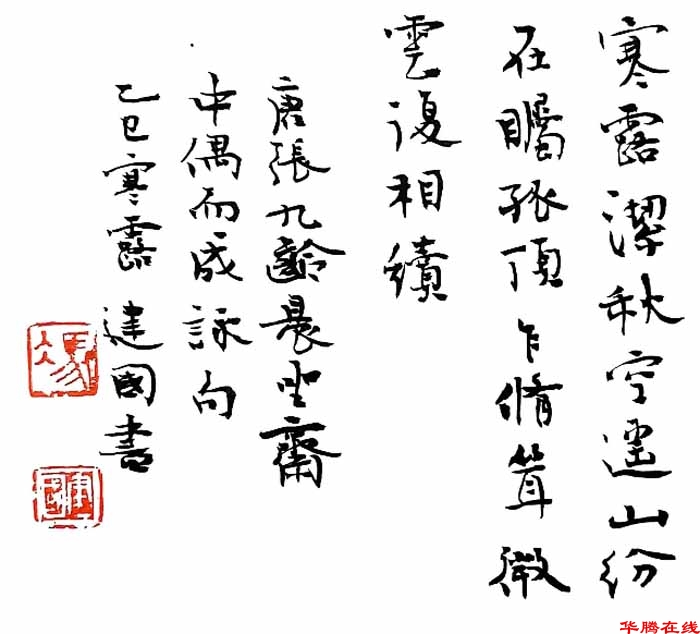 寒露潔秋空遥山紛
在矚孤頂乍脩聳微
雲復相續
唐張九齡晨坐齋
中偶而成詠句
乙巳寒露建國書
馮
建國
华腾在线